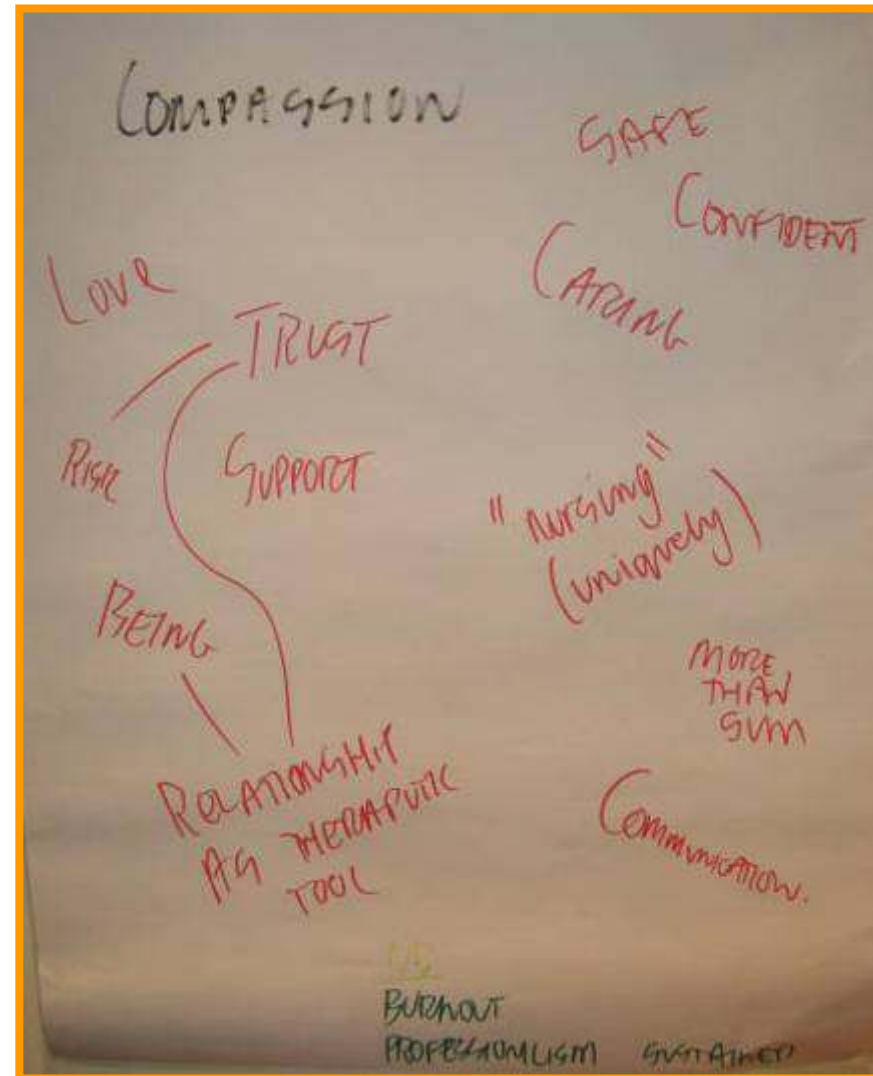 COMPASSION
SAFE
CONFIDENT
CARING
Love
TRUST
RISK
SUPPORT
"nursing"
(uniquely)
BEING
MORE
THAN
SUM
RELATIONSHIP
AS THERAPUTIC
TOOL
Communication.
BURNOUT
PROFESSIONLISM SUSTAINED